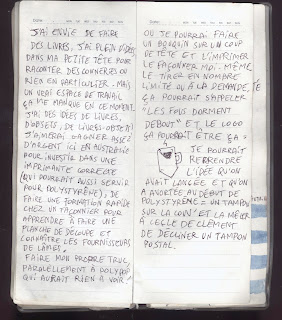 J'AI ENVIE DE FAIRE
DES LIVRES. J'AI PLEIN D'IDÉES
DANS MA PETITE TÊTE POUR
RACONTER DES CONNERIES OU
RIEN EN PARTICULIER. MAIS
UN VRAI ESPACE DE TRAVAIL
ÇA ME MANQUE EN CE MOMENT.
J'AI DES IDÉES DE LIVRES,
D'OBJETS, DE LIVRES-OBJETS!
J'AIMERAI GAGNER ASSEZ
D'ARGENT ICI EN AUSTRALIE
POUR INVESTIR DANS UNE
IMPRIMANTE CORRECTE
(QUI POURRAIT AUSSI SERVIR
POUR POLYSTYRÈNE), DE
FAIRE UNE FORMATION RAPIDE
CHEZ UN FAÇONNIER POUR
APPRENDRE À FAIRE UNE
PLANCHE DE DÉCOUPE ET
CONNAÎTRE LES FOURNISSEURS
DE LAMES.
FAIRE MON PROPRE TRUC,
PARALLÈLEMENT À POLY
QUI AURAIT RIEN À VOIR
OÙ JE POURRAI FAIRE
UN BOUQUIN SUR UN COUP
DE TÊTE ET L'IMPRIMER
LE FAÇONNER MOI-MÊME
LE TIRER EN NOMBRE
LIMITÉ OU À LA DEMANDE,
ÇA POURRAIT S'APPELER
"LES FOUS DORMENT
DEBOUT" ET LE LOGO
ÇA POURRAIT ÊTRE ÇA:
JE POURRAIT
REPRENDRE
L'IDÉE QU'ON
AVAIT LANCÉE ET QU'ON
A AVORTÉE AU DÉBUT DE
POLYSTYRÈNE = UN TAMPON
SUR LA COUV' ET LA MÊLER
À CELLE DE CLÉMENT
DE DÉCLINER UN TAMPON
POSTAL.